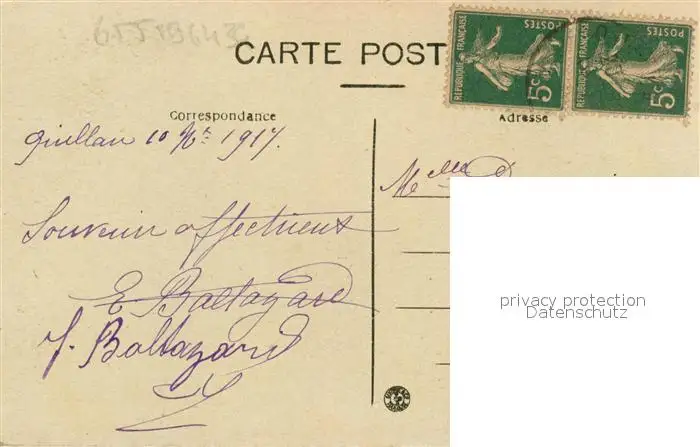 6JJ19643
CARTE POST
REPUBLIQUE FRANÇAISE POSTES 5c
REPUBLIQUE FRANÇAISE POSTES 5c
Correspondance
Adresse
Quillan 10 9bre 1917.
Melle
Souvenir affectueux
E Baltazard
J. Baltazard
privacy protection
Datenschutz